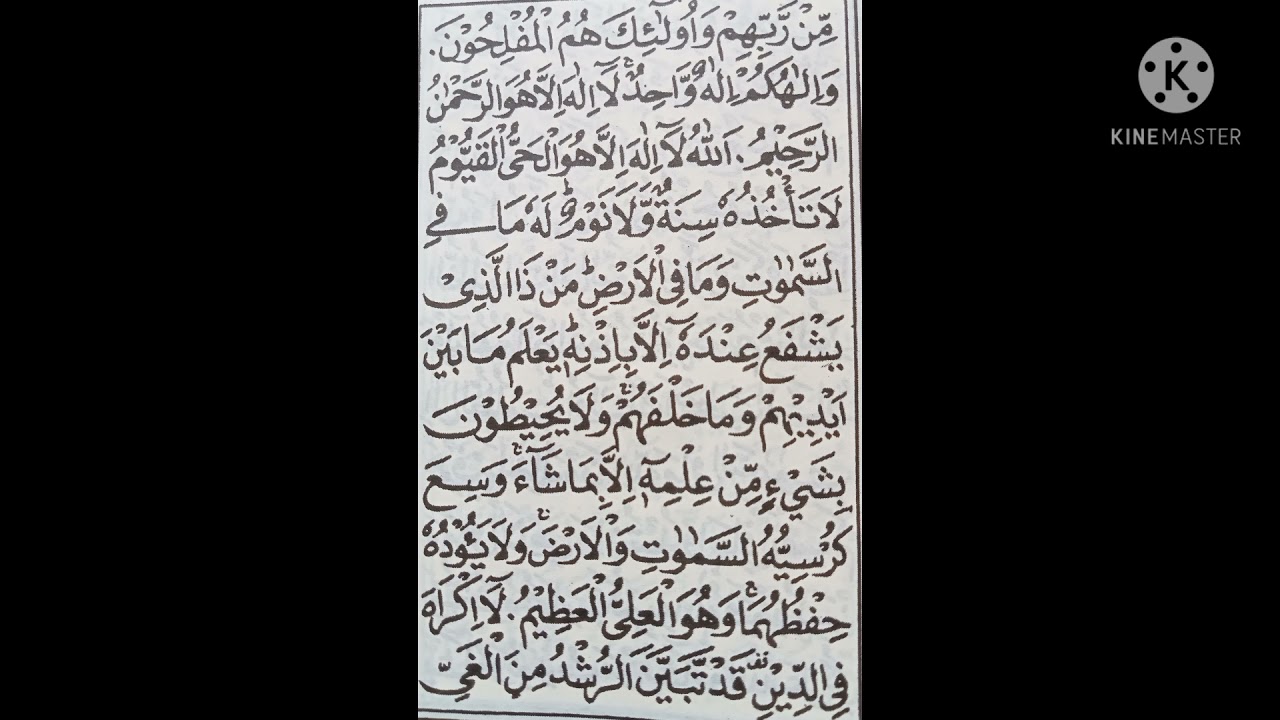 مِّنْ رَّبِّهِمْ وَاُولٰٓئِكَ هُمُ الْمُفْلِحُوْنَ.
وَاِلٰهُكُمْ اِلٰهٌ وَّاحِدٌ ۚ لَآ اِلٰهَ اِلَّا هُوَ الرَّحْمٰنُ
الرَّحِيْمُ. اَللّٰهُ لَآ اِلٰهَ اِلَّا هُوَ الْحَىُّ الْقَيُّوْمُ
لَا تَأْخُذُهٗ سِنَةٌ وَّلَا نَوْمٌ ؕ لَهٗ مَا فِى
السَّمٰوٰتِ وَمَا فِى الْاَرْضِ ؕ مَنْ ذَا الَّذِىْ
يَشْفَعُ عِنْدَهٗٓ اِلَّا بِاِذْنِهٖ ؕ يَعْلَمُ مَا بَيْنَ
اَيْدِيْهِمْ وَمَا خَلْفَهُمْ ۚ وَلَا يُحِيْطُوْنَ
بِشَيْءٍ مِّنْ عِلْمِهٖٓ اِلَّا بِمَا شَآءَ ۚ وَسِعَ
كُرْسِيُّهُ السَّمٰوٰتِ وَالْاَرْضَ ۚ وَلَا يَئُوْدُهٗ
حِفْظُهُمَا ۚ وَهُوَ الْعَلِىُّ الْعَظِيْمُ. لَآ اِكْرَاهَ
فِى الدِّيْنِ قف قَدْ تَّبَيَّنَ الرُّشْدُ مِنَ الْغَىِّ
K
KINEMASTER